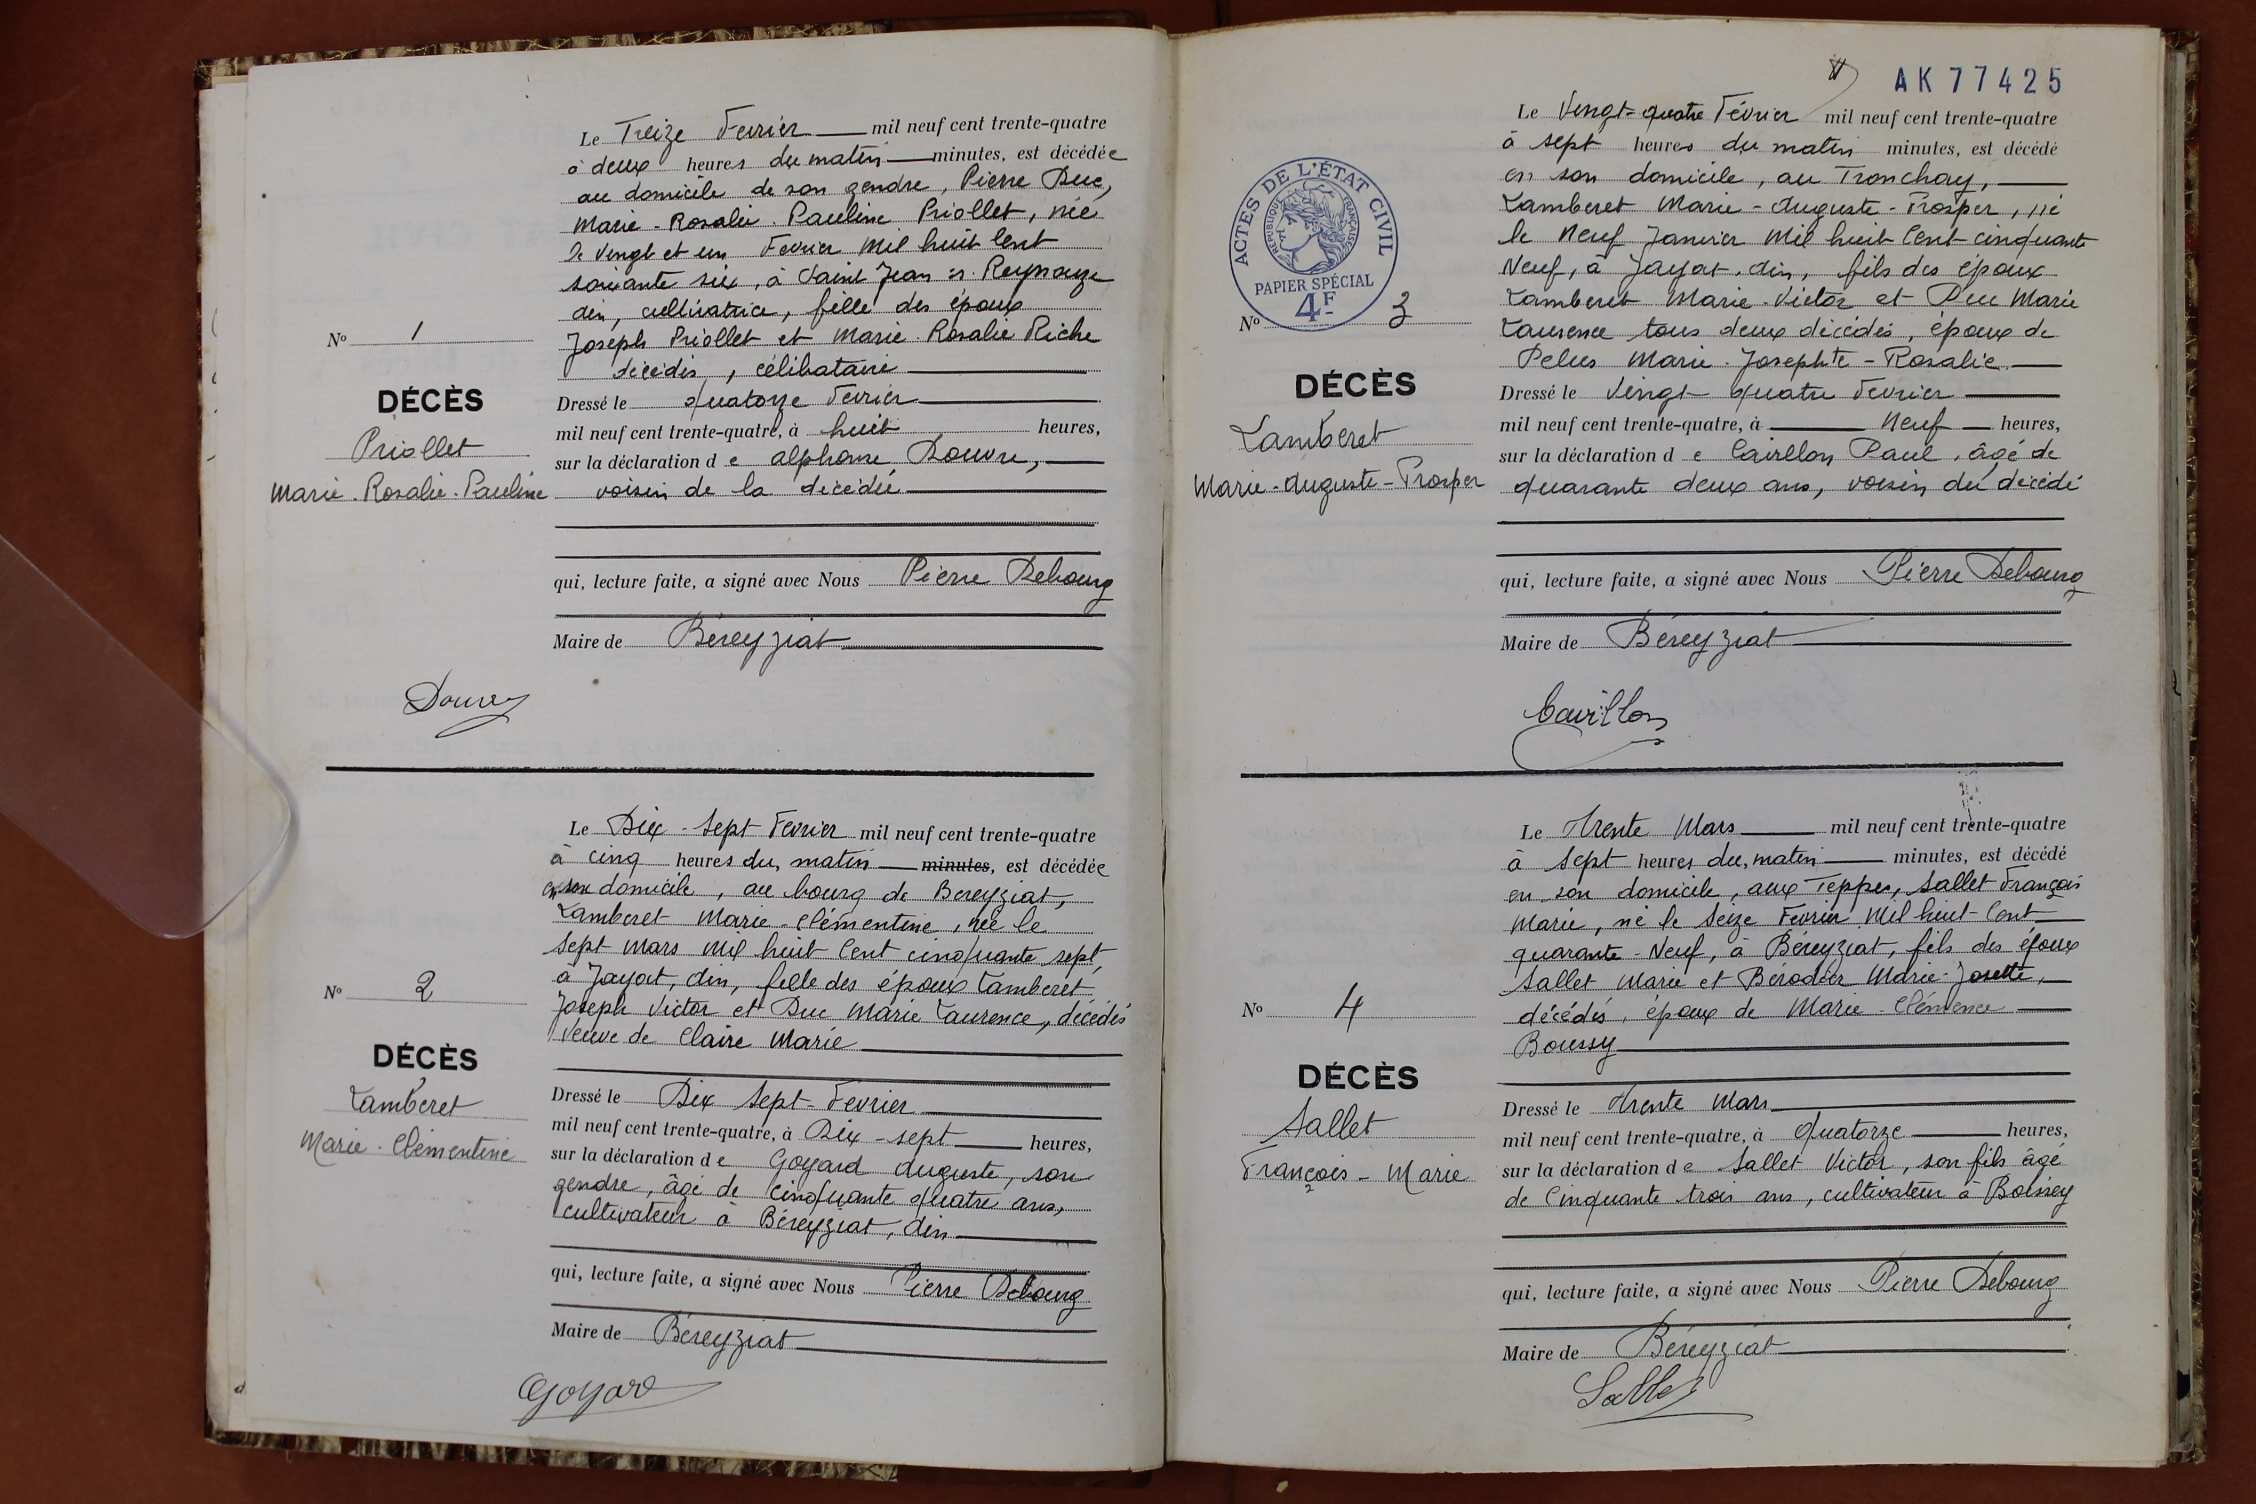 Le Treize Fevrier mil neuf cent trente-quatre
à deux heures du matin minutes, est décédée
au domicile de son gendre, Pierre Duc,
Marie-Rosalie-Pauline Priollet, née
le vingt et un Fevrier mil huit Cent
soixante six, à Saint Jean s. Reyssouze
Ain, cultivatrice, fille des époux
Joseph Priollet et Marie-Rosalie Riche
décédés, célibataire
No 1
DÉCÈS
Priollet
Marie-Rosalie-Pauline
Dressé le quatorze Fevrier
mil neuf cent trente-quatre, à huit heures,
sur la déclaration de alphonse Douvre,
voisin de la décédée
qui, lecture faite, a signé avec Nous Pierre Debourg
Maire de Béreyziat
Le Dix-Sept Fevrier mil neuf cent trente-quatre
à cinq heures du matin minutes, est décédée
en son domicile, au bourg de Bereyziat,
Lamberet Marie-Clémentine, née le
Sept Mars Mil huit Cent cinquante sept,
à Jayat, Ain, fille des époux Lamberet
Joseph Victor et Duc Marie Laurence, décédés
Veuve de Claire Marie
No 2
DÉCÈS
Lamberet
Marie-Clémentine
Dressé le Dix Sept-Fevrier
mil neuf cent trente-quatre, à Dix-sept heures,
sur la déclaration de Goyard Auguste, son
gendre, âgé de Cinquante quatre ans,
Cultivateur à Béreyziat, Ain
qui, lecture faite, a signé avec Nous Pierre Debourg
Maire de Béreyziat
Goyard
AK 77425
ACTES DE L'ÉTAT CIVIL
RÉPUBLIQUE FRANÇAISE
PAPIER SPÉCIAL
4F
Le Vingt-quatre Février mil neuf cent trente-quatre
à sept heures du matin minutes, est décédé
en son domicile, au Tronchay,
Lamberet Marie-Auguste-Prosper, né
le Neuf Janvier Mil huit Cent-cinquante
Neuf, à Jayat, Ain, fils des époux
Lamberet Marie-Victor et Duc Marie
Laurence tous deux décédés, époux de
Pelus Marie-Josephte-Rosalie
No 3
DÉCÈS
Lamberet
Marie-Auguste-Prosper
Dressé le Vingt-quatre Fevrier
mil neuf cent trente-quatre, à Neuf heures,
sur la déclaration de Cavillon Paul, âgé de
quarante deux ans, voisin du décédé
qui, lecture faite, a signé avec Nous Pierre Debourg
Maire de Béreyziat
Cavillon
Le Trente Mars mil neuf cent trente-quatre
à Sept heures du matin minutes, est décédé
en son domicile, aux Teppes, Sallet François
Marie, né le Seize Fevrier Mil huit-Cent
quarante-Neuf, à Béreyziat, fils des époux
Sallet Marie et Bérodier Marie-Josette,
décédés, époux de Marie-Clémence
Boussy
No 4
DÉCÈS
Sallet
François-Marie
Dressé le Trente Mars
mil neuf cent trente-quatre, à Quatorze heures,
sur la déclaration de Sallet Victor, son fils âgé
de Cinquante trois ans, cultivateur à Boissey
qui, lecture faite, a signé avec Nous Pierre Debourg
Maire de Béreyziat
Sallet